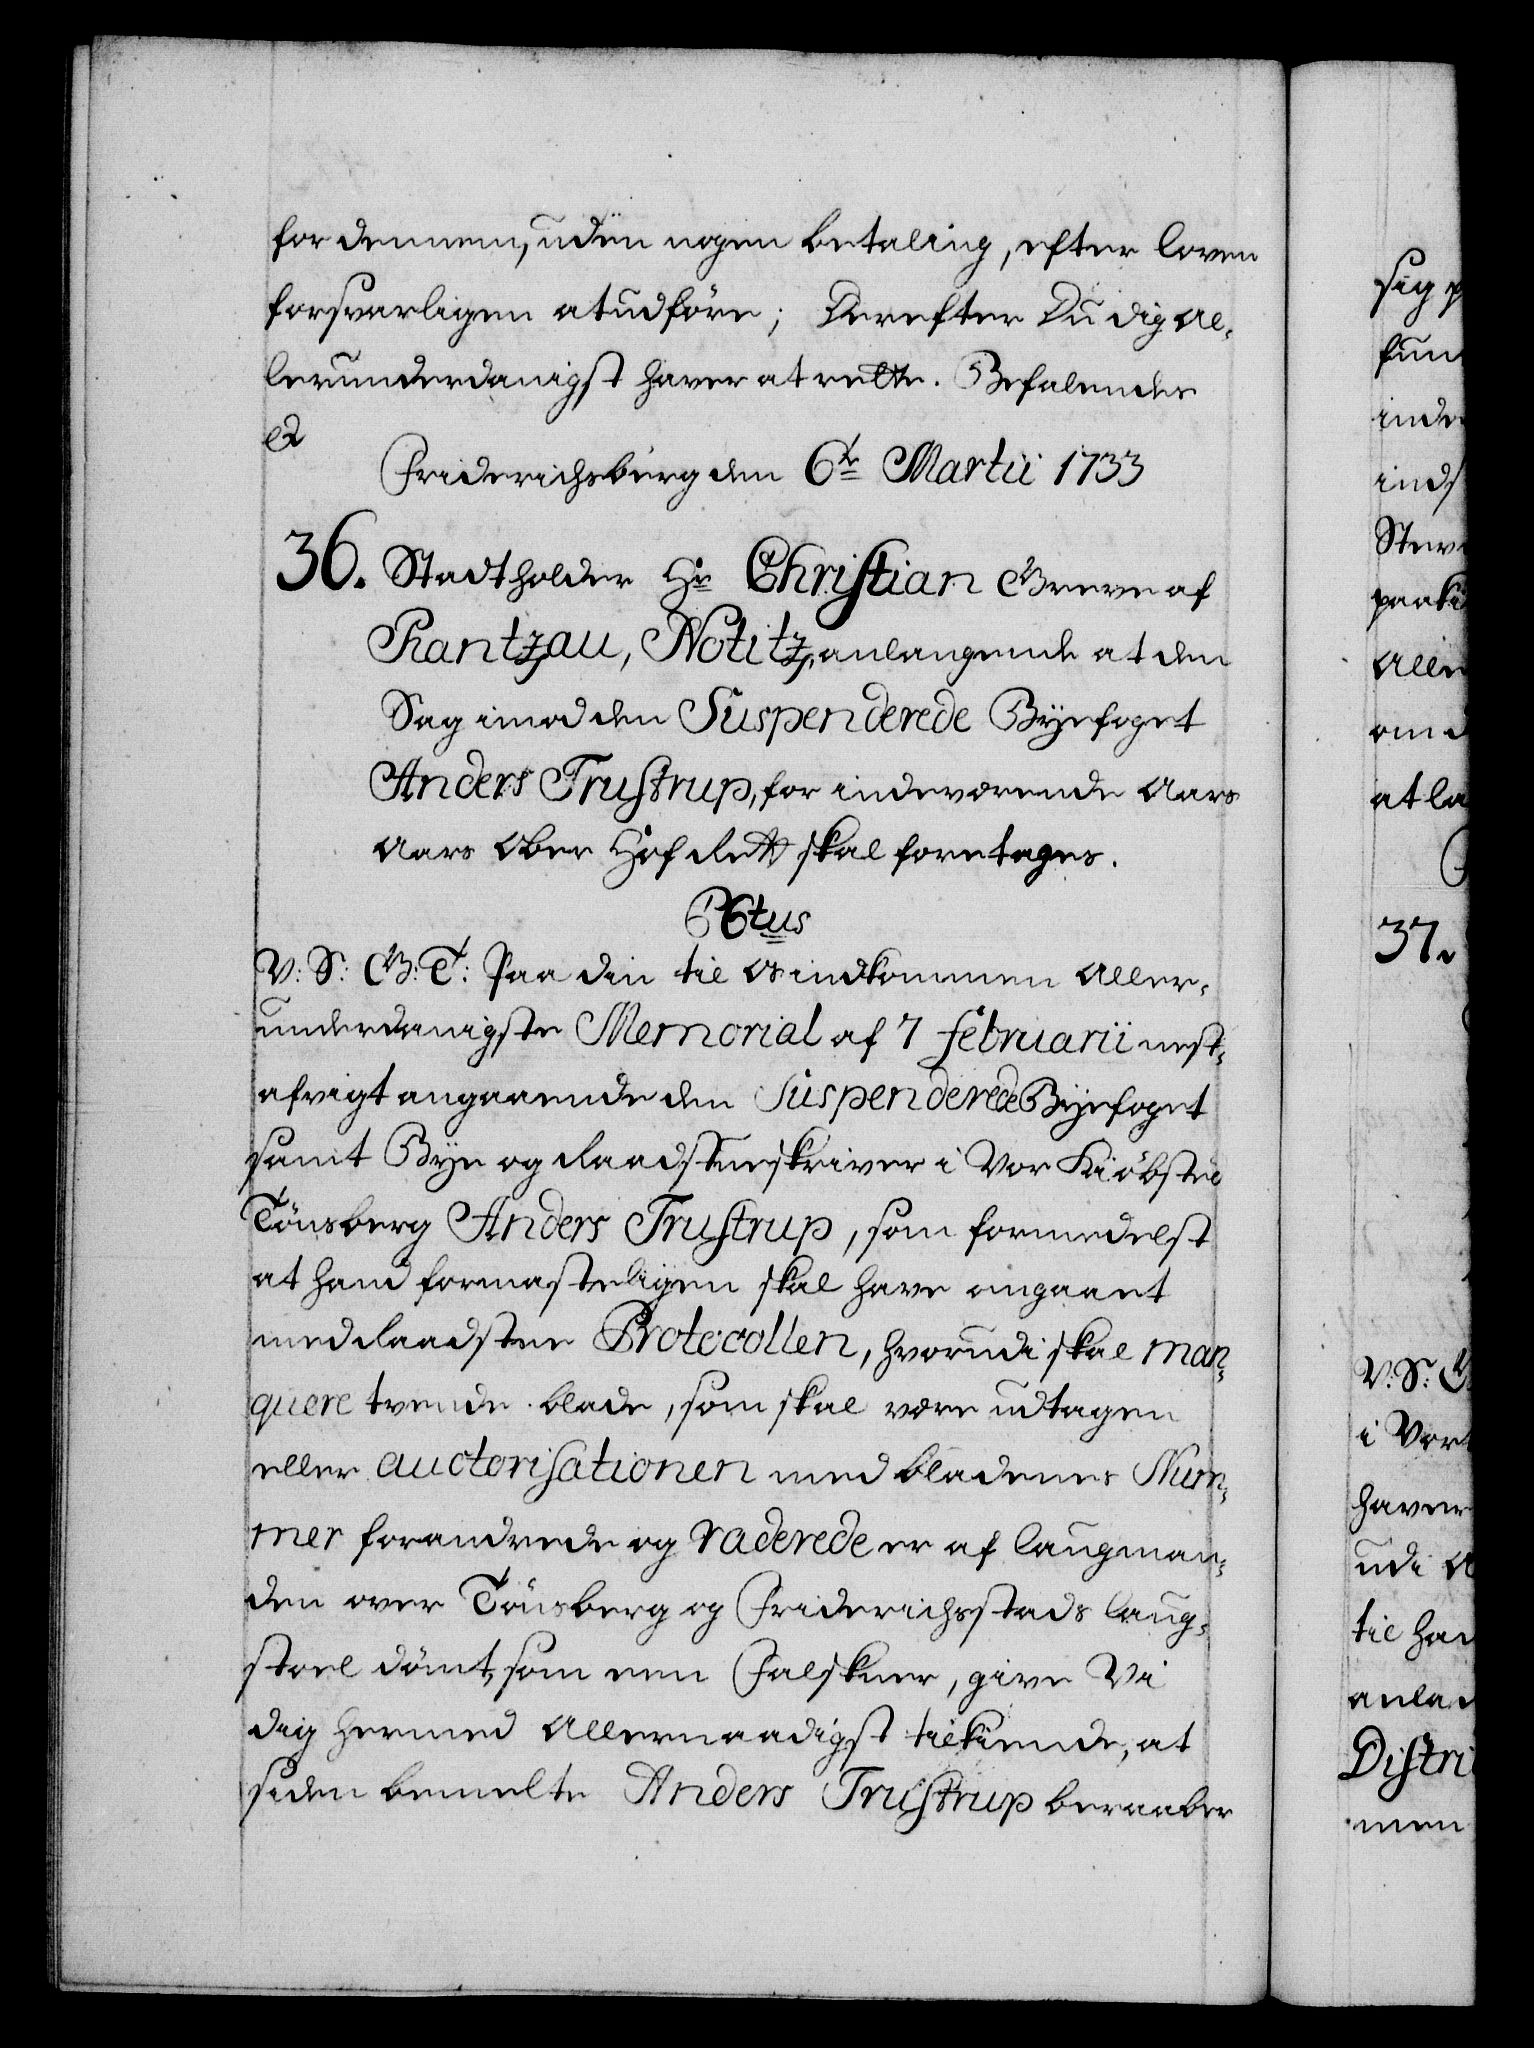 for dennem, uden nogen betaling, efter loven
forsvarligen at udföre; Derefter Du dig Al-
lerunderdanigst haver at rette. Befalendes
&
Friderichsburg den 6te Martii 1733
36. Stadtholder Hr Christian Greve af
Rantzau, Notitz, anlangende at den
Sag imod den Suspenderede Byefoget
Anders Trustrup, for indeværende Aars
Aars Ober Hof Rett skal foretages.
C6tus
V: S: G: T: Paa din til Os indkommen Aller-
underdanigste Memorial af 7 februarii nest-
afvigt angaaende den Suspenderede Byefoget
samt Bye og Raadstueskriver i Vor Kiöbsted
Tönsberg Anders Trustrup, som formedelst
at hand formasteligen skal have omgaaet
med Raadstue Protocollen, hvorudi skal man-
quere tvende blade, som skal være udtagen
eller auctorisationen med bladenes Num-
mer forandrede og raderede er af laugman-
den over Tönsberg og Friderichsstads laug-
stoel dömt, som een Falskner, give Vi
dig hermed Allernaadigst tilkiende, at
siden bemelte Anders Trustrup beraaber
sig p
fun
inde
inds
Stew
paaki
Alle
om d
at la
37.
V: S: G
i Vort
haver
udi A
til han
anlan
Distri
men